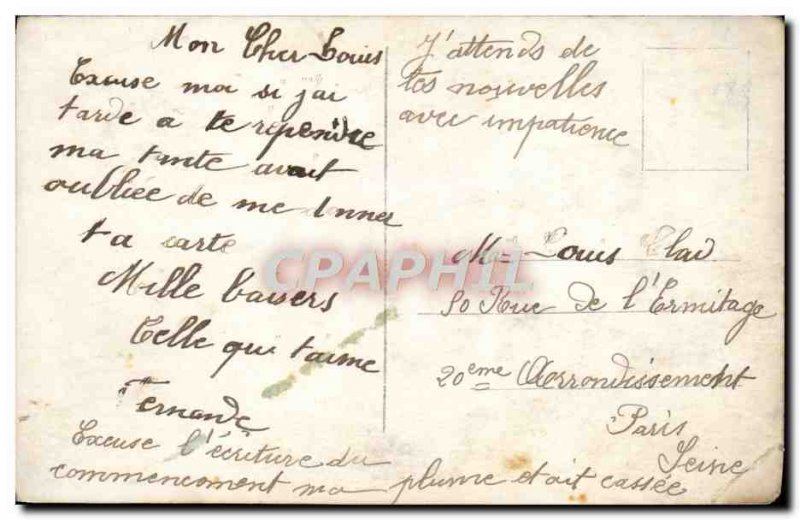 Mon Cher Louis
Excuse moi si j'ai
tarde a te rependre
ma tante avait
oubliée de me donner
ta carte
Mille baisers
Celle qui t'aime
Fernande
Excuse l'écriture du
commencement ma plume etait cassée
J'attends de
tes nouvelles
avec impatience
Louis
50 Rue de l'Ermitage
20eme Arrondissement
Paris
Seine
CPAPHIL